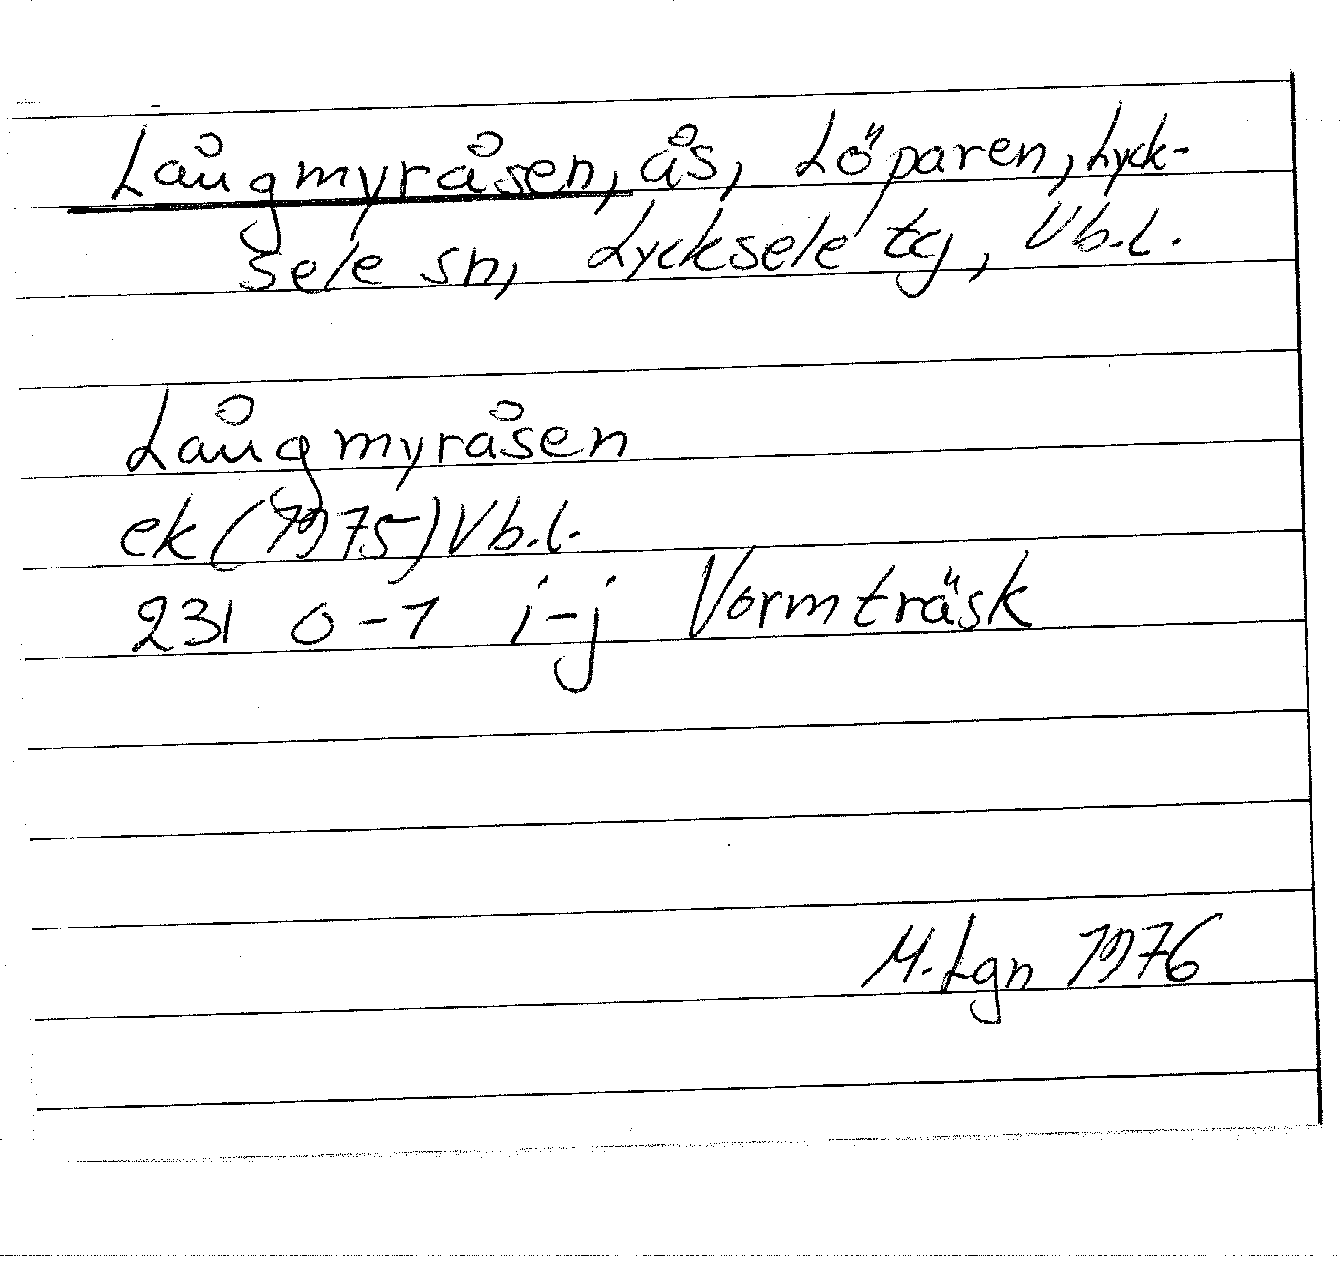 Långmyråsen, ås, Löparen, Lyck-
sele sn, Lycksele tg, Vb.l.
Långmyråsen
ek (1975) Vb.l.
231 0-1 i-j Vormträsk
M. Lgn 1976